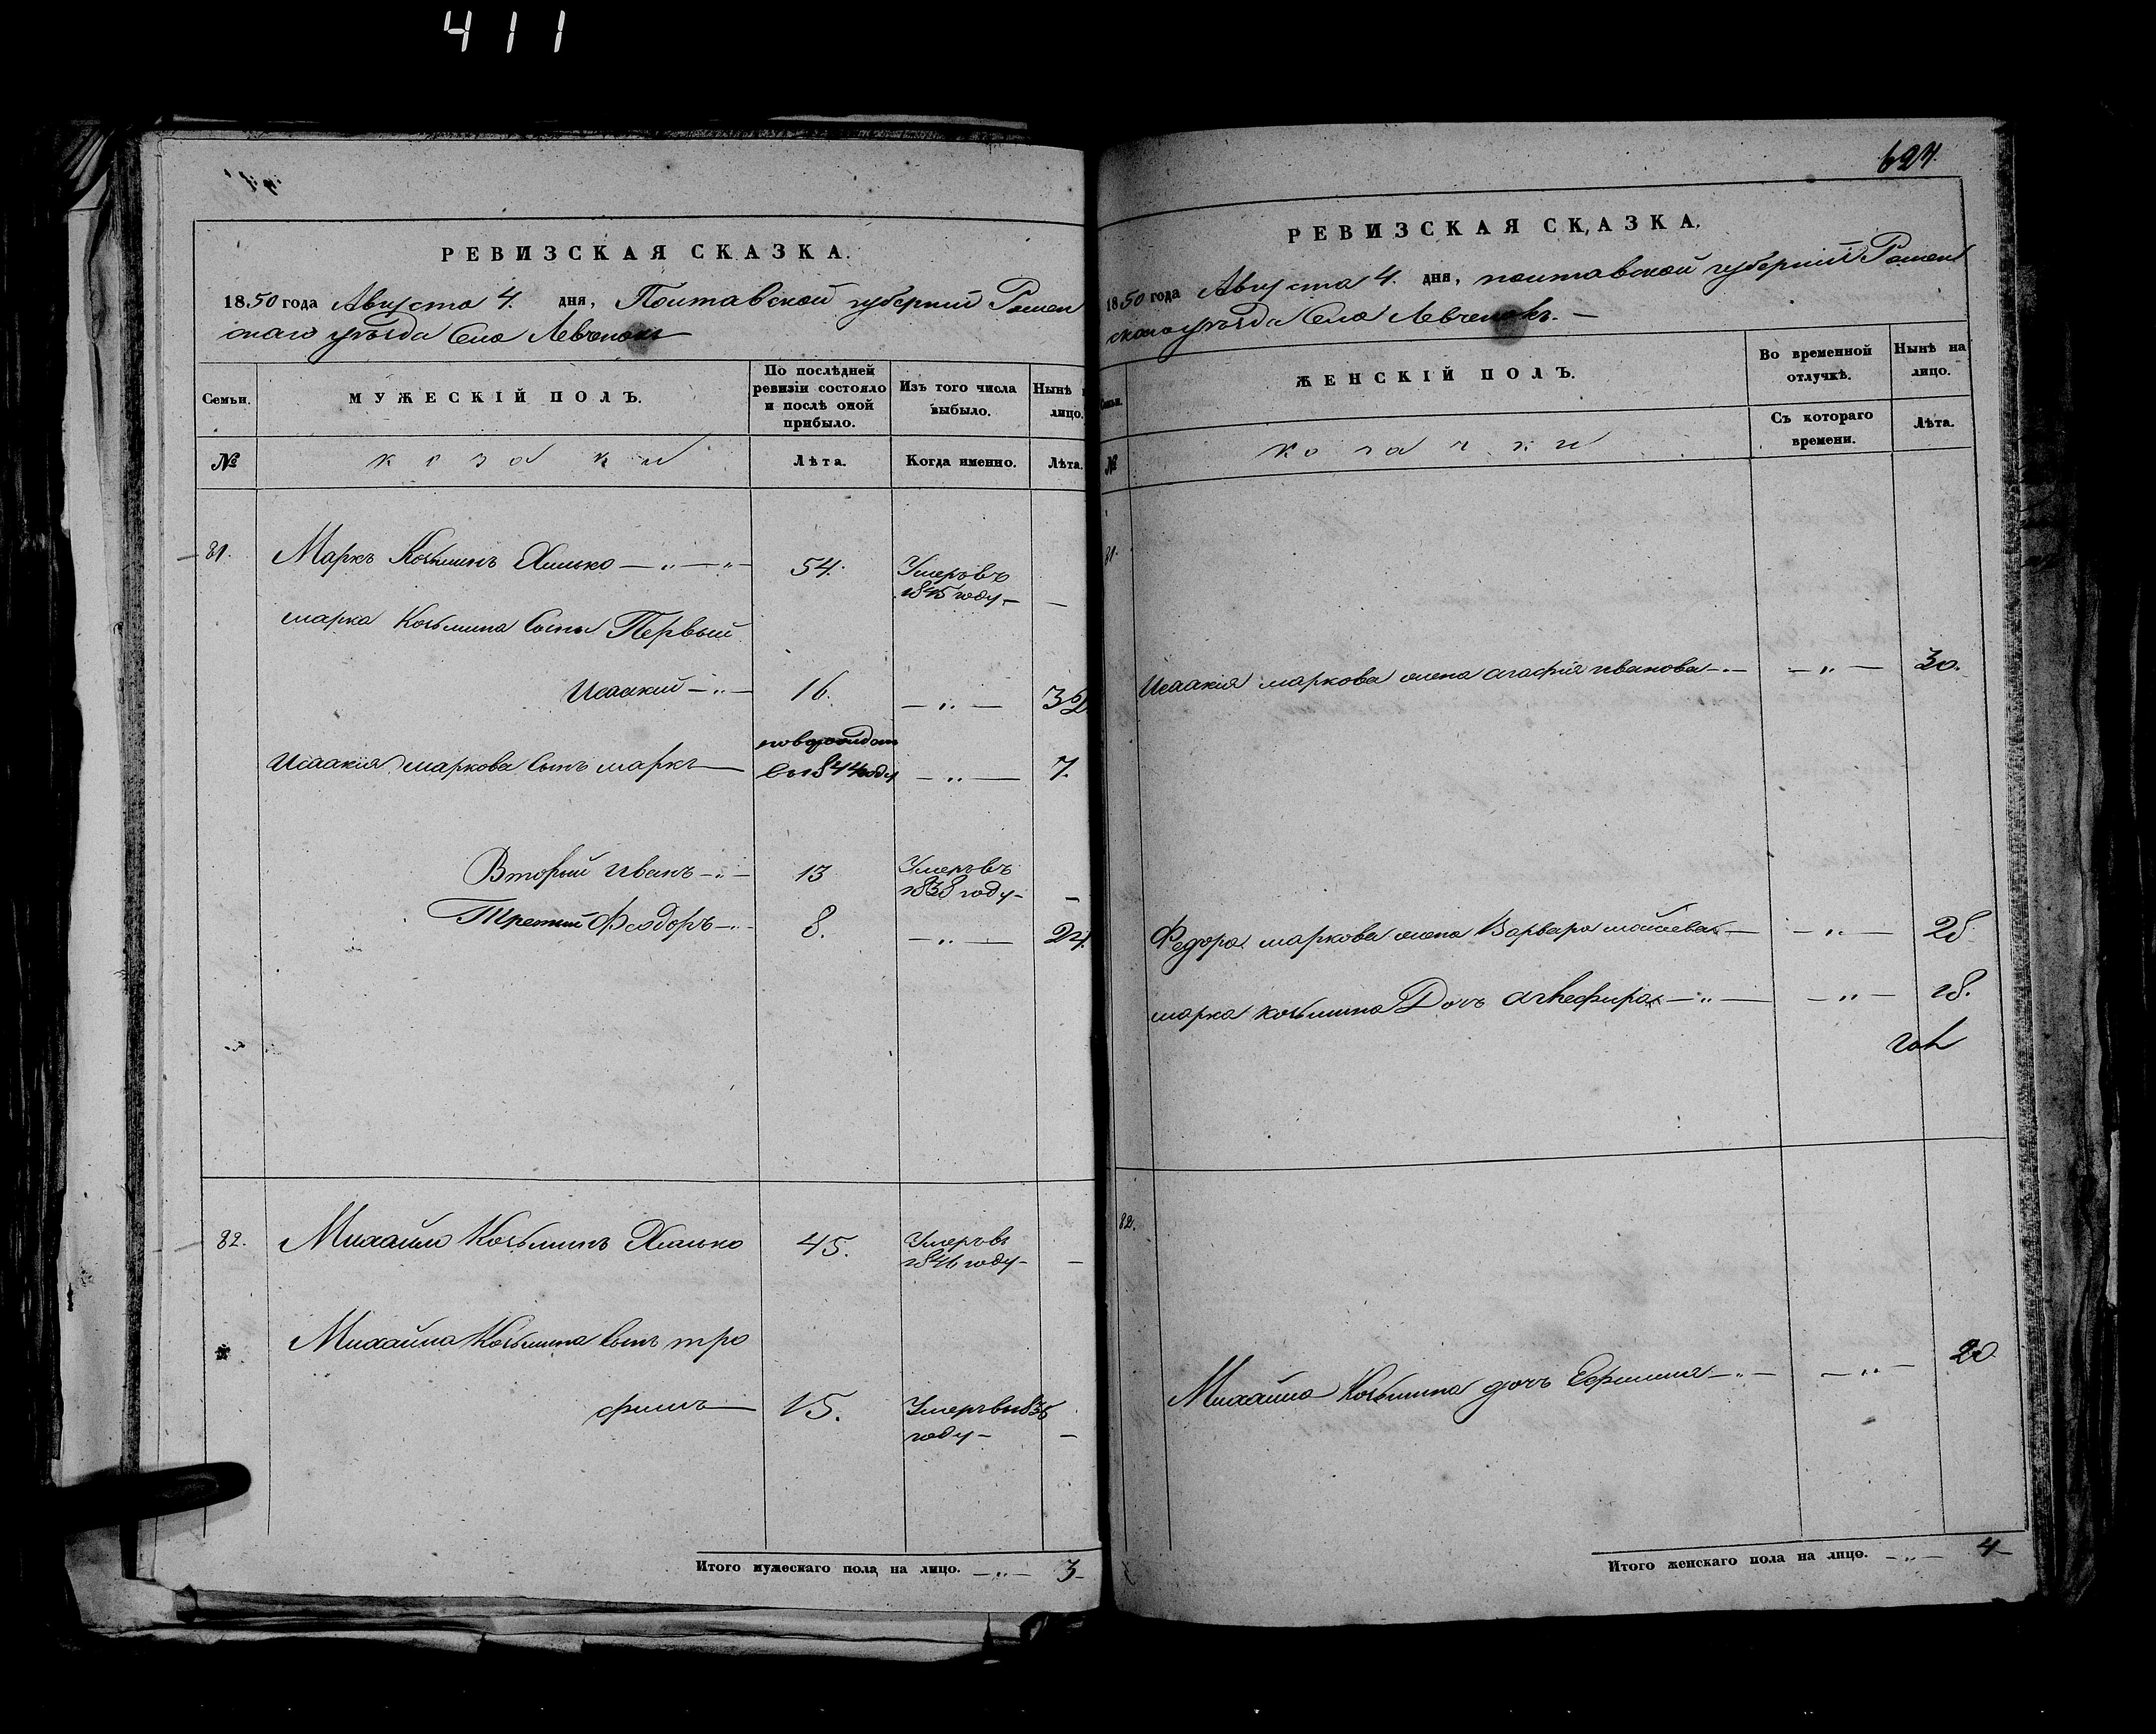 411
РЕВИЗСКАЯ СКАЗКА.
1850 года Августа 4. дня, Полтавской губернии Ромен
скаго уѣзда Села Левченокъ
Семьи.
МУЖЕСКІЙ ПОЛЪ.
По послѣдней ревизіи состояло и послѣ оной прибыло.
Изъ того числа выбыло.
Нынѣ лицо.
№
козаки
Лѣта.
Когда именно.
Лѣта.
81. Маркъ Козьминъ Хилько 54. Умеръ въ
1845 году
марка Козьмина Сыны Первый
Исаакий 16. 32.
новорожден
Исаакія маркова сынъ маркъ въ 1844 году 7.
Вторый иванъ 13 Умеръ въ
1838 году
Третий Феодоръ 8. 24.
82. Михайло Козьминъ Хилько 45. Умеръ въ
1846 году
Михайла Козьмина сынъ тро
фимъ 15. Умеръ въ 1836
году
Итого мужескаго пола на лицо. 3
624
РЕВИЗСКАЯ СКАЗКА.
1850 года Августа 4. дня, полтавской губерніи Ромен
скаго уѣзда Села Левченокъ.
Семьи.
ЖЕНСКІЙ ПОЛЪ.
Во временной отлучкѣ.
Нынѣ на лицо.
№
козачки
Съ котораго времени.
Лѣта.
81.
Исаакія маркова жена агафія иванова 30.
Федора маркова жена Варвара моисеева 28
марка козьмина Дочь 18.
82.
Михайла Козьмина дочь Ефимия 20.
Итого женскаго пола на лицо. 4